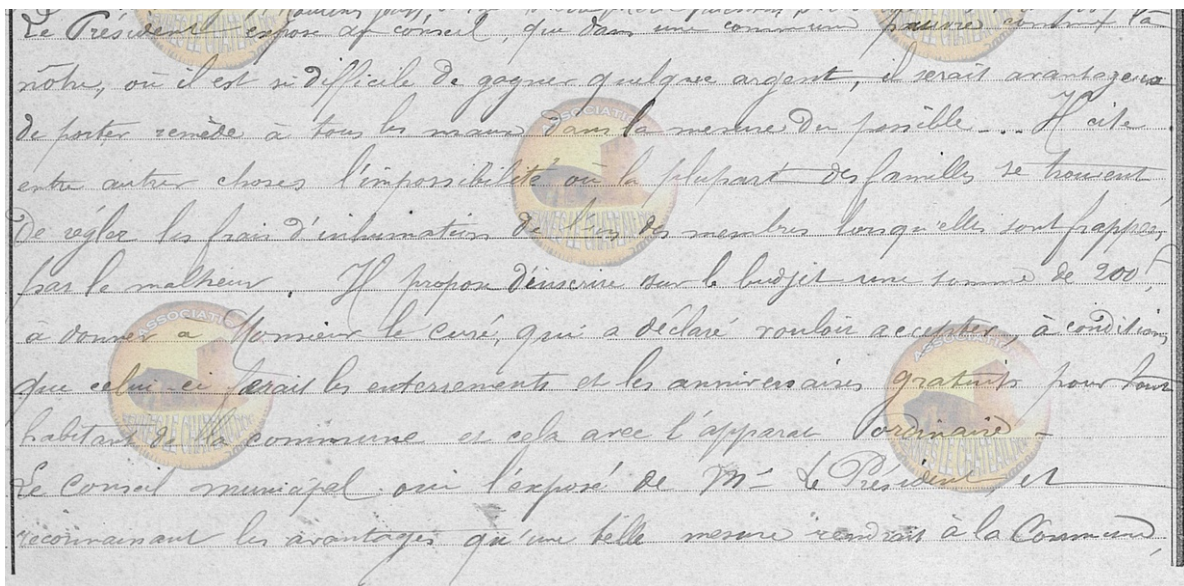 Le Président expose au conseil, que dans une commune pauvre comme la
nôtre, où il est si difficile de gagner quelque argent, il serait avantageux
de porter remède à tous les maux dans la mesure du possible... Il cite
entre autres choses l'impossibilité où la plupart des familles se trouvent
de régler les frais d'inhumation de l'un des membres lorsqu'elles sont frappées
par le malheur. Il propose d'inscrire sur le budjet une somme de 200 F
à donner a Monsieur le curé, qui a déclaré vouloir accepter, à condition
que celui-ci ferait les enterrements et les anniversaires gratuits pour tout
habitant de la commune et cela avec l'apparat ordinaire -
Le Conseil municipal ouï l'exposé de Mr Le Président et
reconnaissant les avantages qu'une telle mesure rendrait à la Commune,